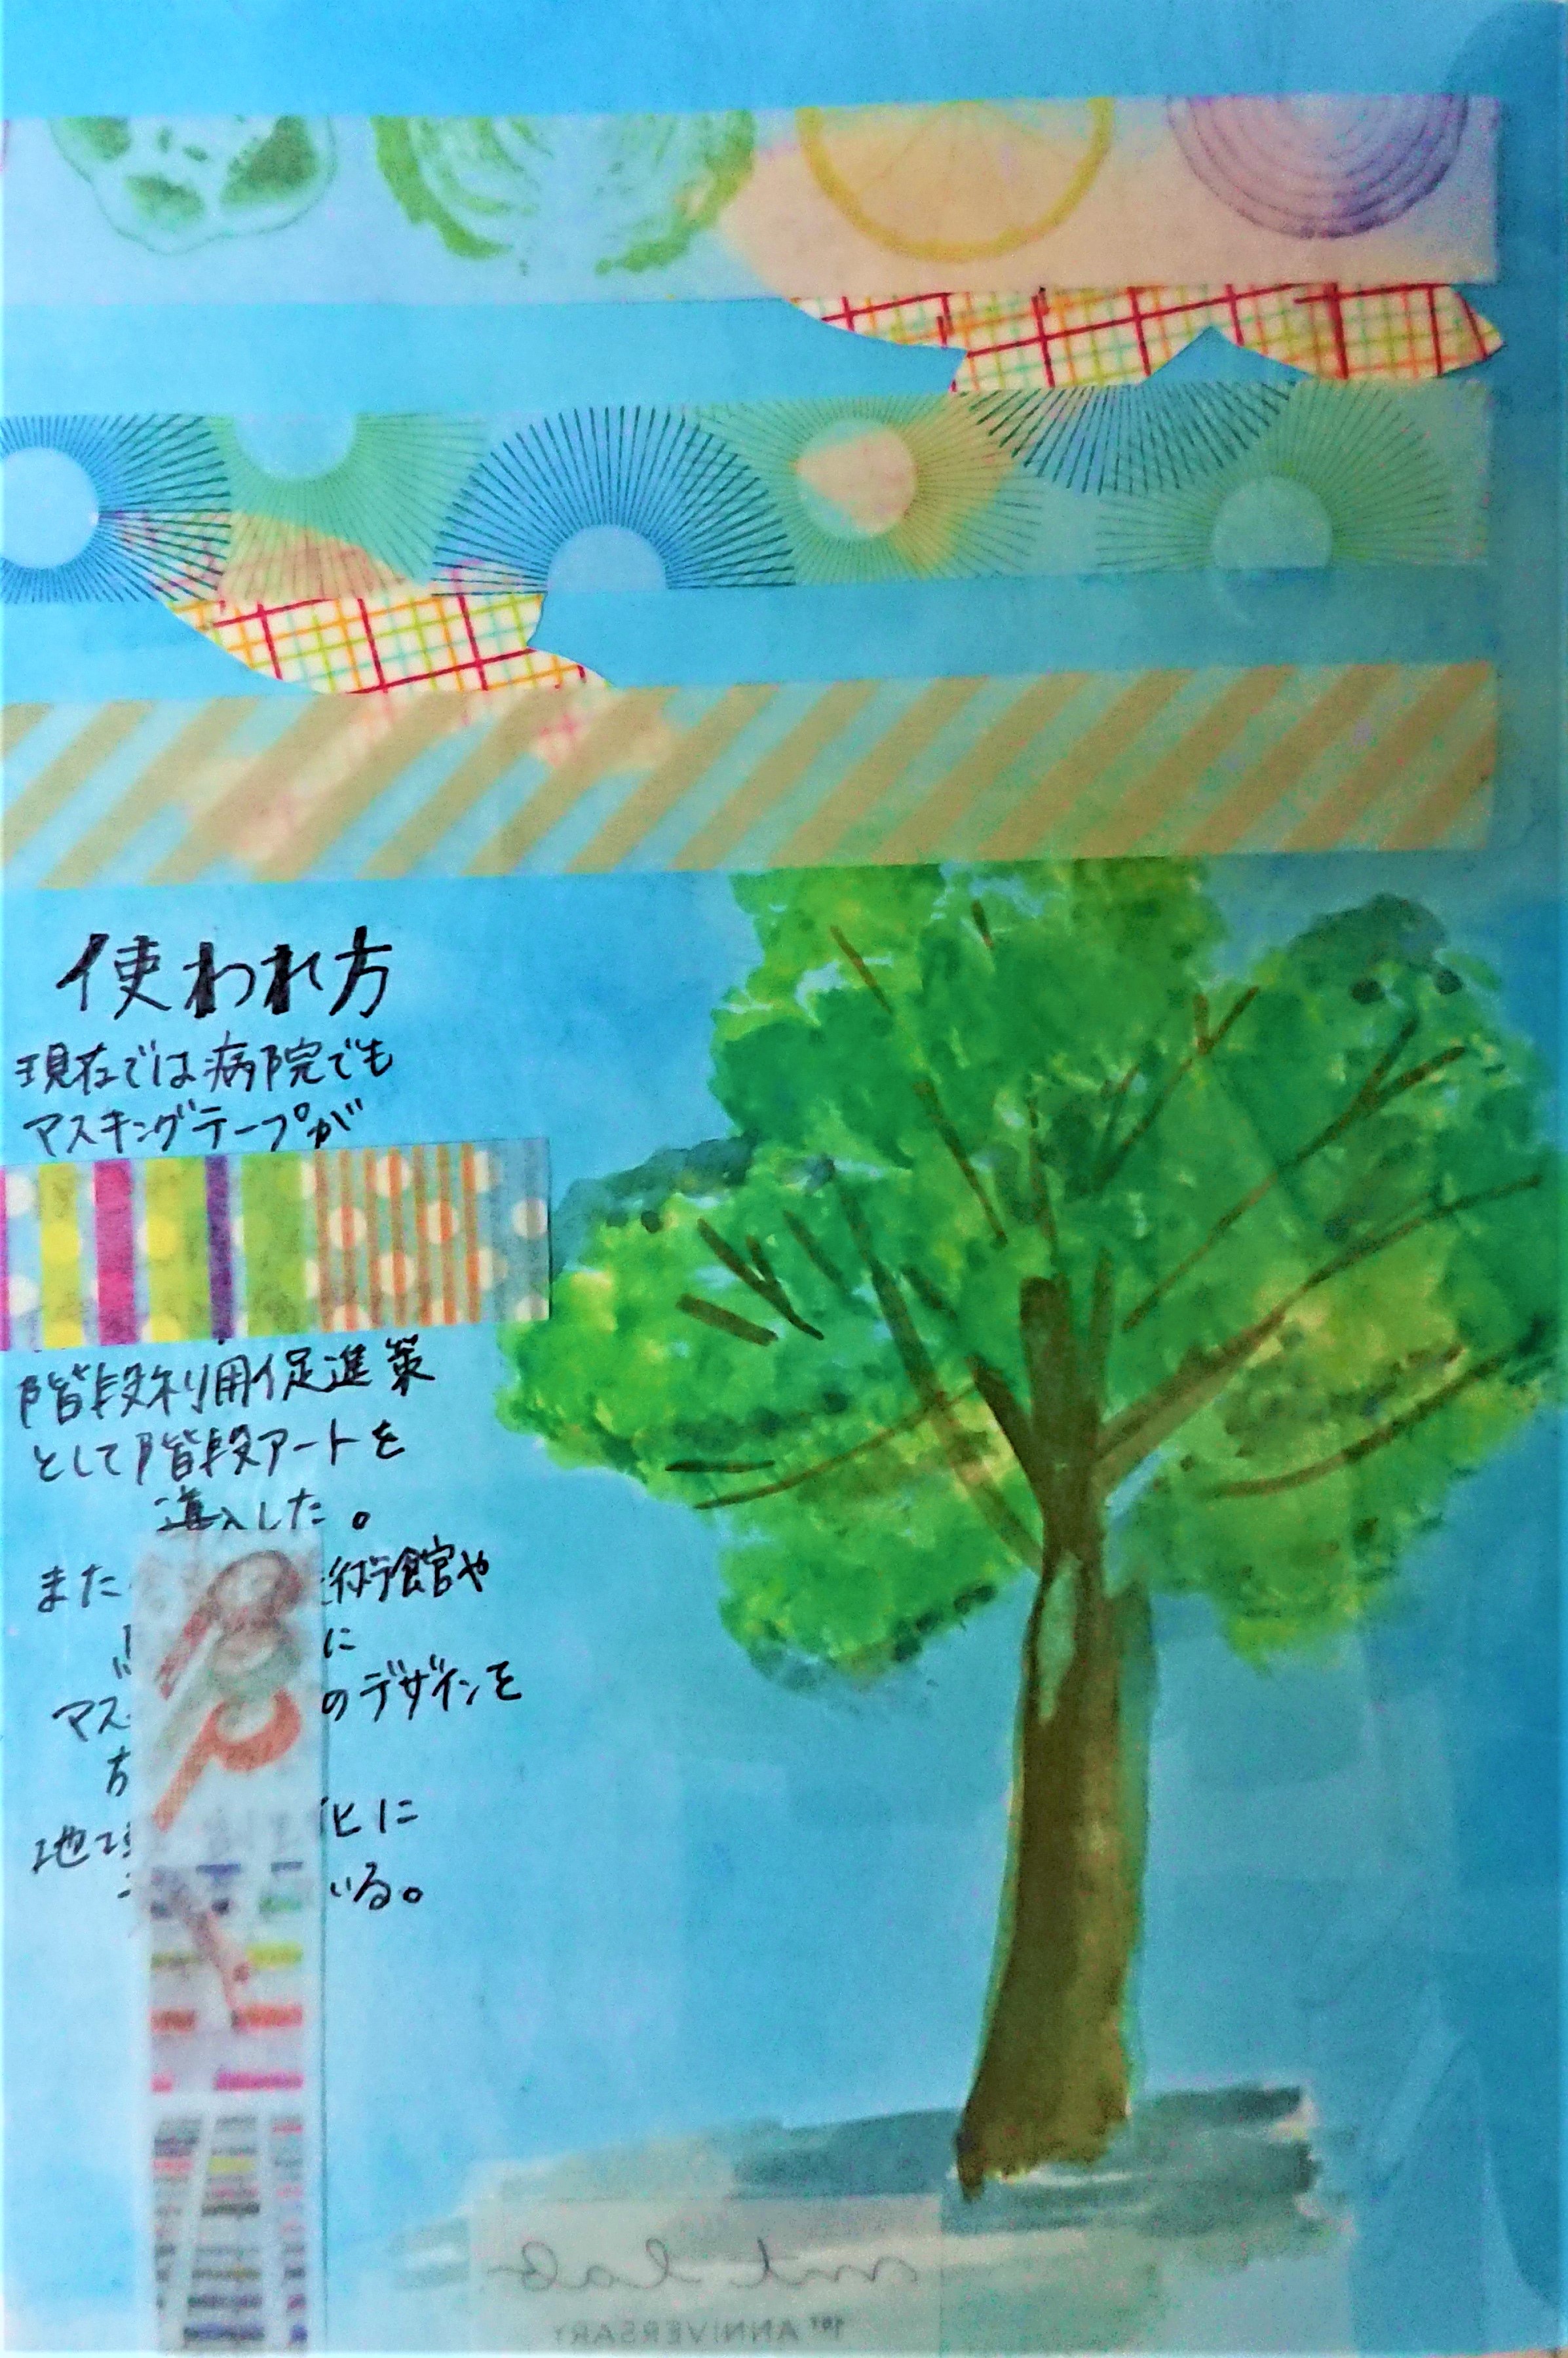 使われ方
現在では病院でも
マスキングテープが
階段利用促進策
として階段アートを
導入した。
また 術館や
に
マス のデザインを
地域 化に
いる。
mt lab
1ST ANNIVERSARY